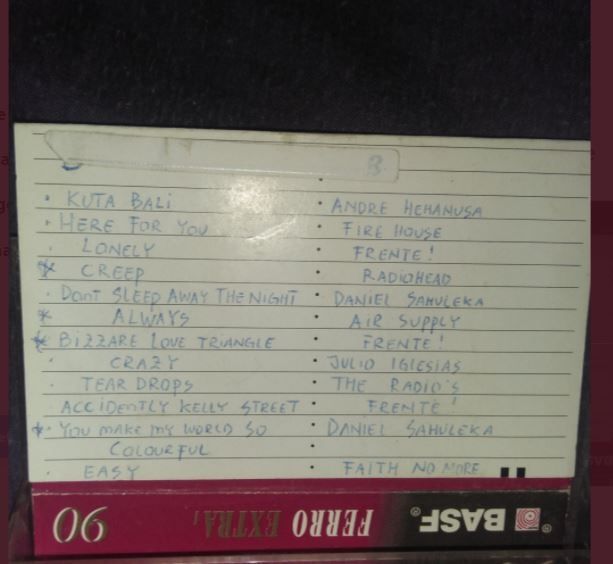 B
KUTA BALI · ANDRE HEHANUSA
HERE FOR YOU · FIRE HOUSE
LONELY · FRENTE!
* CREEP RADIOHEAD
DONT SLEEP AWAY THE NIGHT · DANIEL SAHULEKA
* ALWAYS · AIR SUPPLY
* BIZZARE LOVE TRIANGLE · FRENTE!
CRAZY · JULIO IGLESIAS
TEAR DROPS · THE RADIO'S
ACCIDENTLY KELLY STREET · FRENTE!
* YOU MAKE MY WORLD SO · DANIEL SAHULEKA
COLOURFUL
EASY · FAITH NO MORE
BASF® FERRO EXTRA I 90